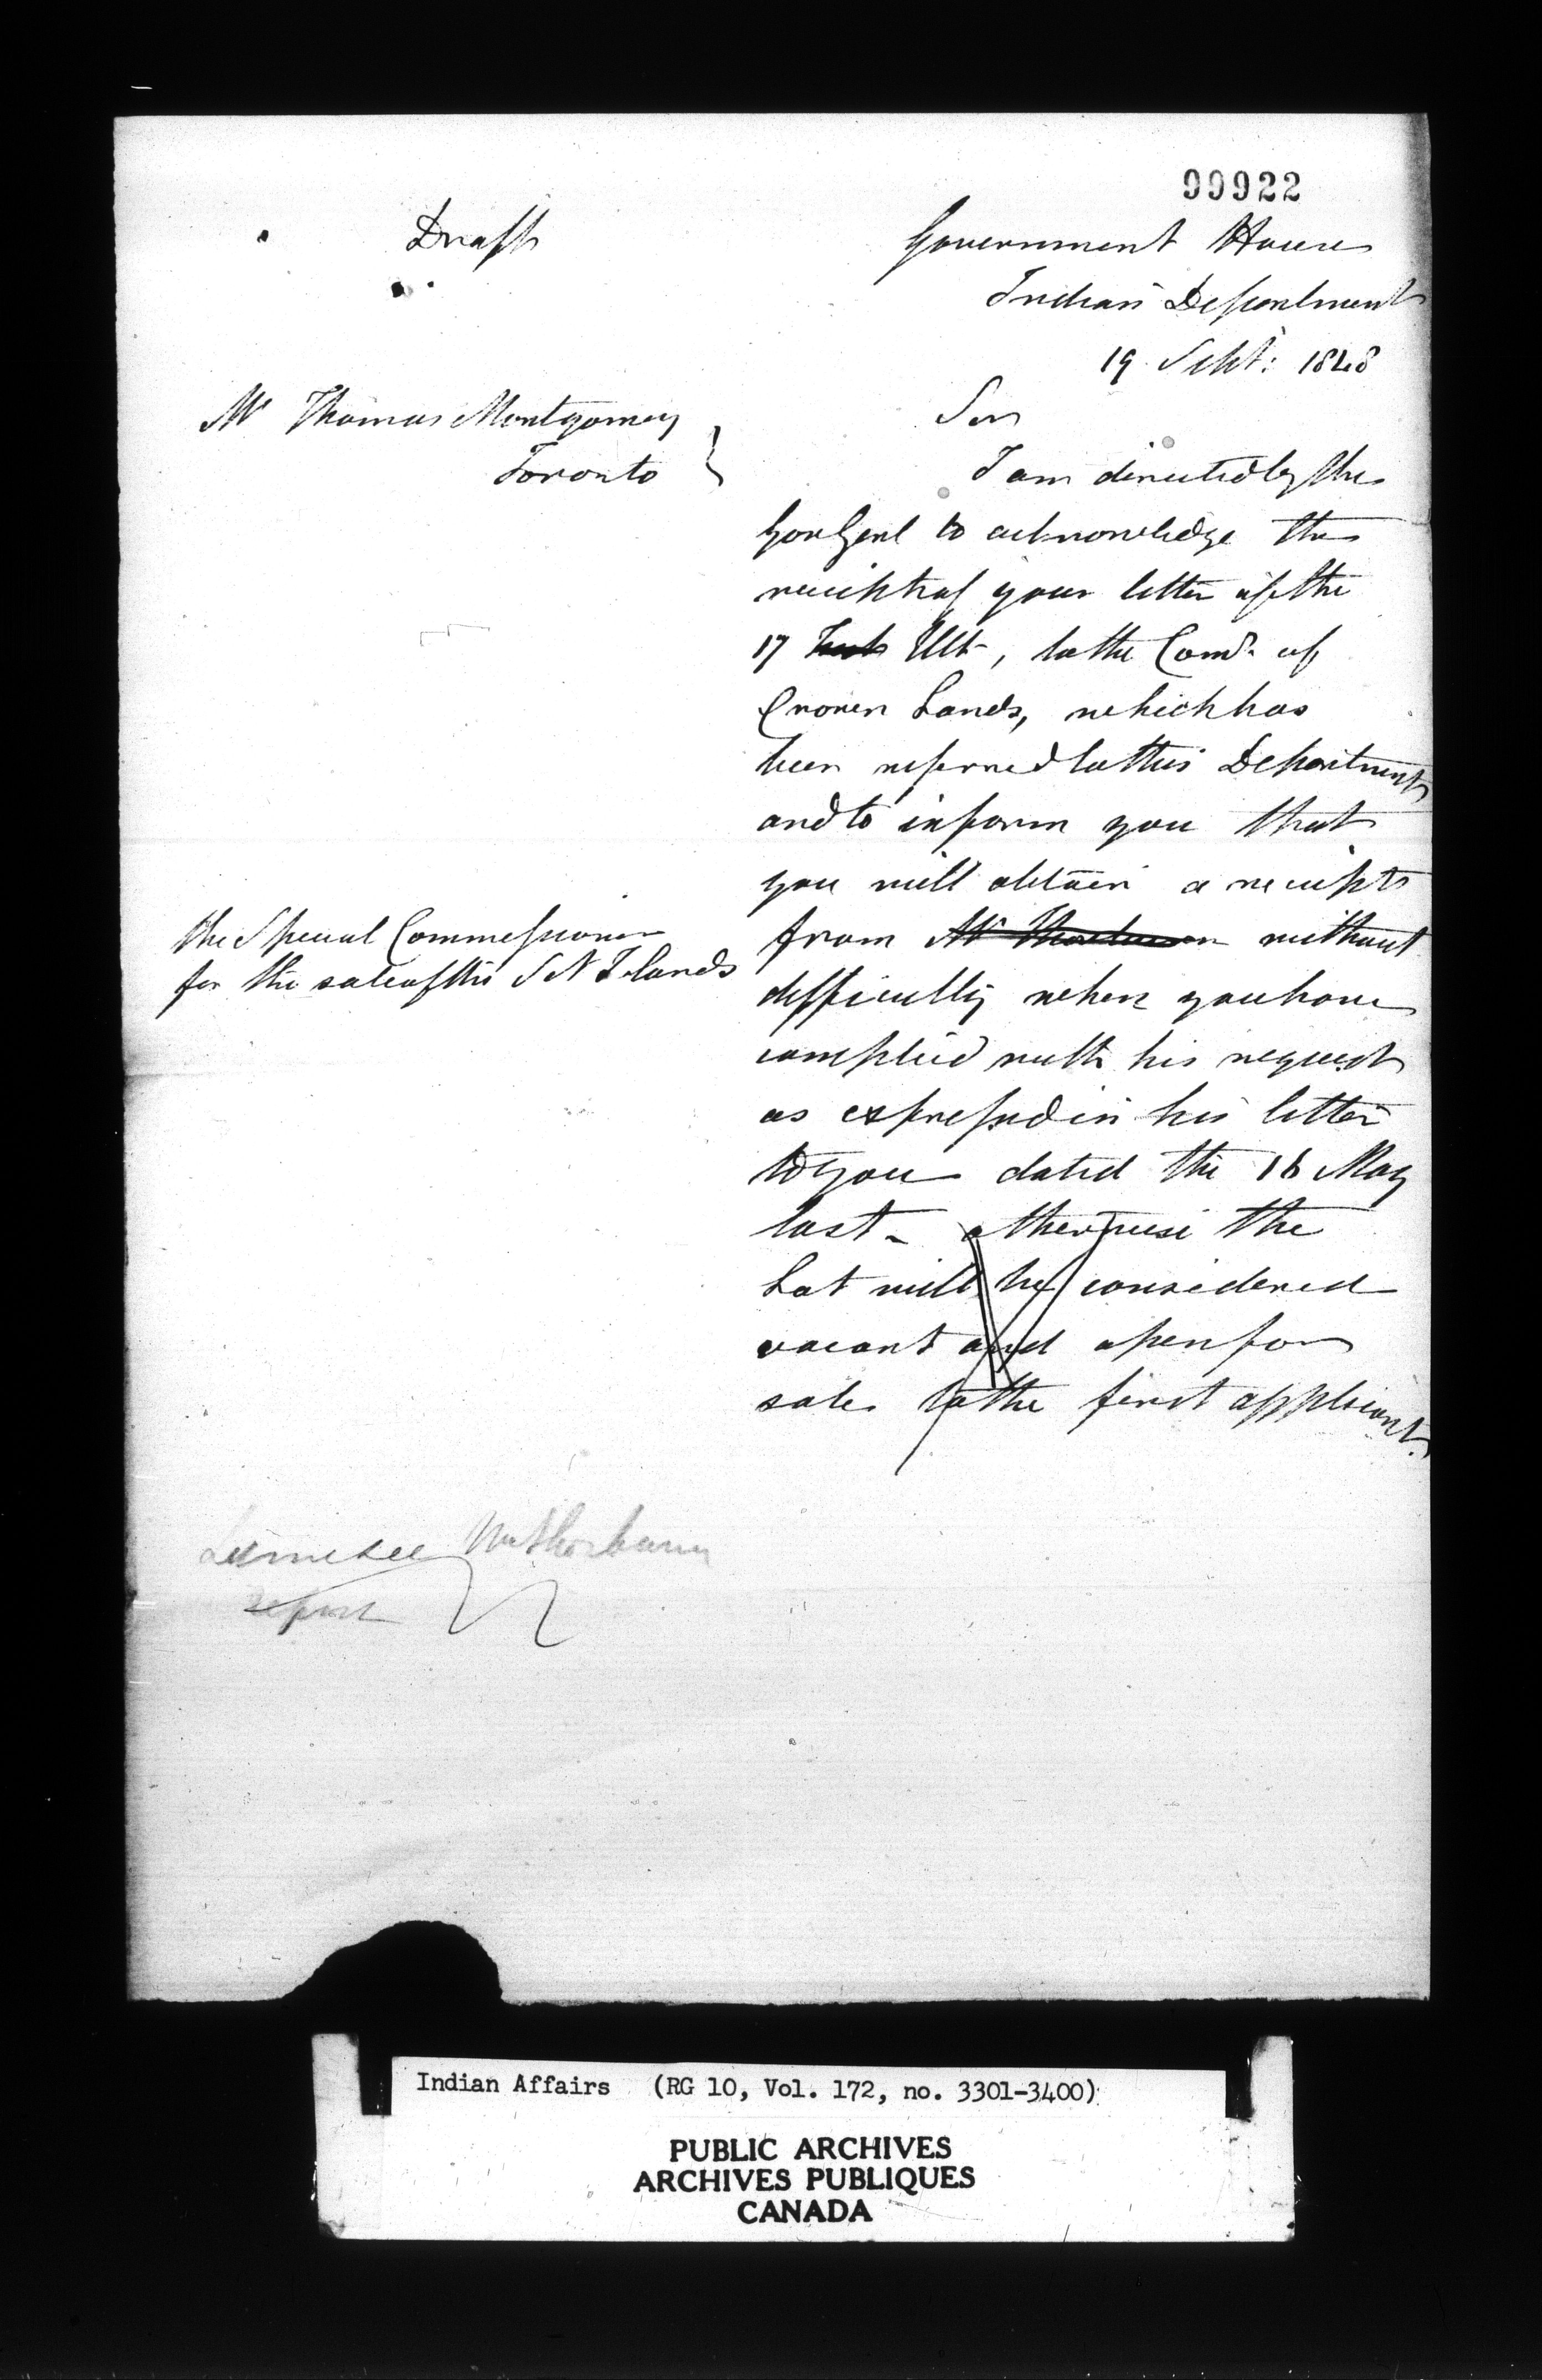 99922
Draft
Government House
Indian Department
19 Sept: 1848
Mr Thomas Montgomery
Toronto
Sir
I am directed by the
Gov Genl to acknowledge the
receipt of your letter of the
17 Ult, to the Comr. of
Crown Lands, which has
been referred to this Department
and to inform you that
you will obtain a receipt
from Mr Thorburn without
the Special Commissioner
for the sale of the S N I Lands
difficulty when you have
complied with his request
as expressed in his letter
to you dated the 16 May
last - otherwise the
Lot will be considered
vacant and open for
sale to the first applicant.
Let me see Mr Thorburn
report
Indian Affairs (RG 10, Vol. 172, no. 3301-3400)
PUBLIC ARCHIVES
ARCHIVES PUBLIQUES
CANADA